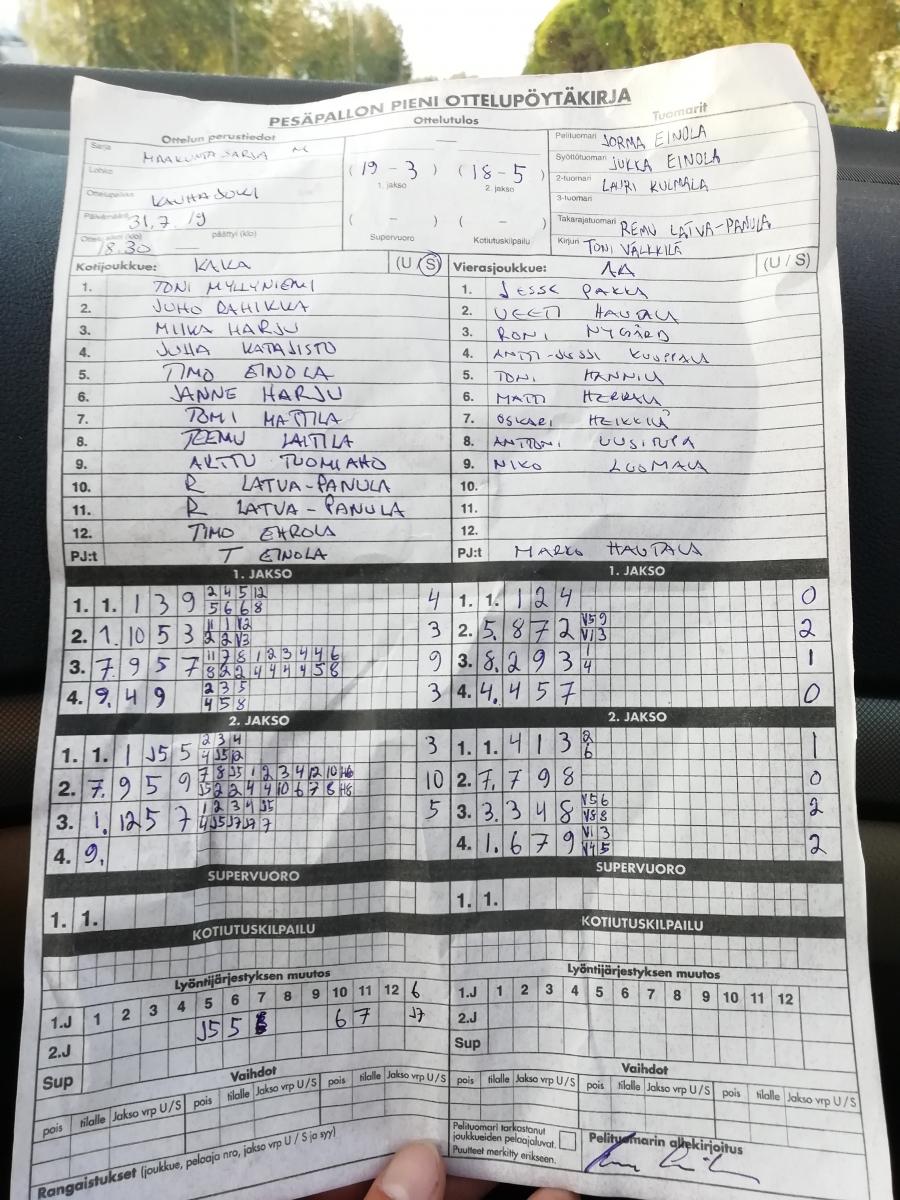 PESÄPALLON PIENI OTTELUPÖYTÄKIRJA
Ottelun perustiedot
Ottelutulos
Tuomarit
Sarja MAAKUNTASARJA M
Lohko
Ottelupaikka KAUHAJOKI
Päivämäärä 31.7.19
18.30 päättyi (klo)
(19 - 3) (18 - 5)
1. jakso 2. jakso
( - ) ( - )
Supervuoro Kotiutuskilpailu
Pelituomari JORMA EINOLA
Syöttötuomari JUKKA EINOLA
2-tuomari LAURI KULMALA
3-tuomari
Takarajatuomari REMU LATVA-PANULA
Kirjuri TONI VÄLKKILÄ
Kotijoukkue: KAKA (U / S)
1. TONI MYLLYNIEMI
2. JUHO RAHIKKA
3. MIIKA HARJU
4. JUHA KATAJISTO
5. TIMO EINOLA
6. JANNE HARJU
7. TOMI MATTILA
8. TEEMU LAITILA
9. ARTTU TUOMIAHO
10. R LATVA-PANULA
11. R LATVA-PANULA
12. TIMO EHROLA
PJ:t T EINOLA
Vierasjoukkue: AA (U / S)
1. JESSE PAKKA
2. VEETI HAUTALA
3. RONI NYGÅRD
4. ANTTI-JUSSI KUOPPALA
5. TONI HANNILA
6. MATTI HERRALA
7. OSKARI HEIKKILÄ
8. ANTTONI UUSITUPA
9. NIKO LUOMALA
10.
11.
12.
PJ:t MARKO HAUTALA
1. JAKSO
1. 1. 1 3 9 2 4 5 12 4
5 6 6 8
2. 1. 10 5 3 11 1 V2 3
2 2 V3
3. 7. 9 5 7 11 7 8 1 2 3 4 4 6 9
8 2 2 4 4 4 4 5 8
4. 9. 4 9 2 3 5 3
4 5 8
2. JAKSO
1. 1. 1 J5 5 2 3 4 3
4 J5 12
2. 7. 9 5 9 7 8 J5 1 2 3 4 12 10 H6 10
J5 2 2 4 4 10 6 7 8 H8
3. 1. 12 5 7 1 2 3 4 J5 5
4 J5 J7 J7 7
4. 9.
SUPERVUORO
1. 1.
KOTIUTUSKILPAILU
1. JAKSO
1. 1. 1 2 4 0
2. 5. 8 7 2 V5 9 2
V1 3
3. 8. 2 9 3 1 1
4
4. 4. 4 5 7 0
2. JAKSO
1. 1. 4 1 3 2 1
6
2. 7. 7 9 8 0
3. 3. 3 4 8 V5 6 2
V8 8
4. 1. 6 7 9 V1 3 2
V4 5
SUPERVUORO
1. 1.
KOTIUTUSKILPAILU
Lyöntijärjestyksen muutos
1.J 1 2 3 4 5 6 7 8 9 10 11 12 6
2.J J5 5 6 7 J7
Sup
Vaihdot
pois tilalle Jakso vrp U / S pois tilalle Jakso vrp U / S pois tilalle Jakso vrp U / S
Rangaistukset (joukkue, pelaaja nro, jakso vrp U / S ja syy)
Lyöntijärjestyksen muutos
1.J 1 2 3 4 5 6 7 8 9 10 11 12
2.J
Sup
Vaihdot
pois tilalle Jakso vrp U / S pois tilalle Jakso vrp U / S pois tilalle Jakso vrp U / S
Pelituomari tarkastanut
joukkueiden pelaajaluvat.
Puutteet merkitty erikseen.
Pelituomarin allekirjoitus